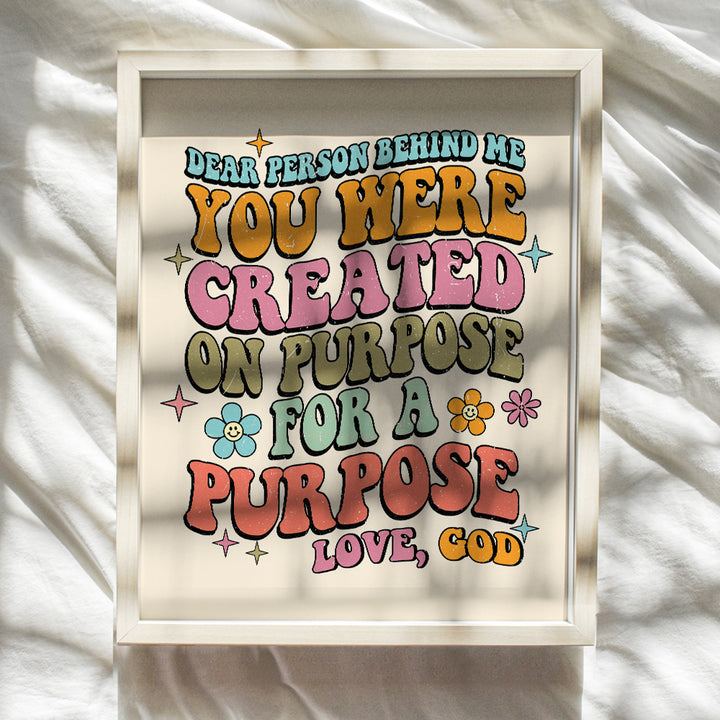 DEAR PERSON BEHIND ME
YOU WERE
CREATED
ON PURPOSE
FOR A
PURPOSE
LOVE, GOD